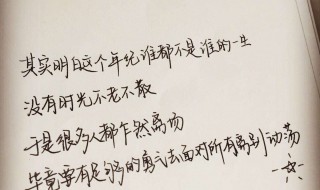 其实明白这个年纪谁都不是谁的一生
没有时光不老不散
于是很多人都乍然离场
毕竟要有足够的勇气去面对所有离别动荡